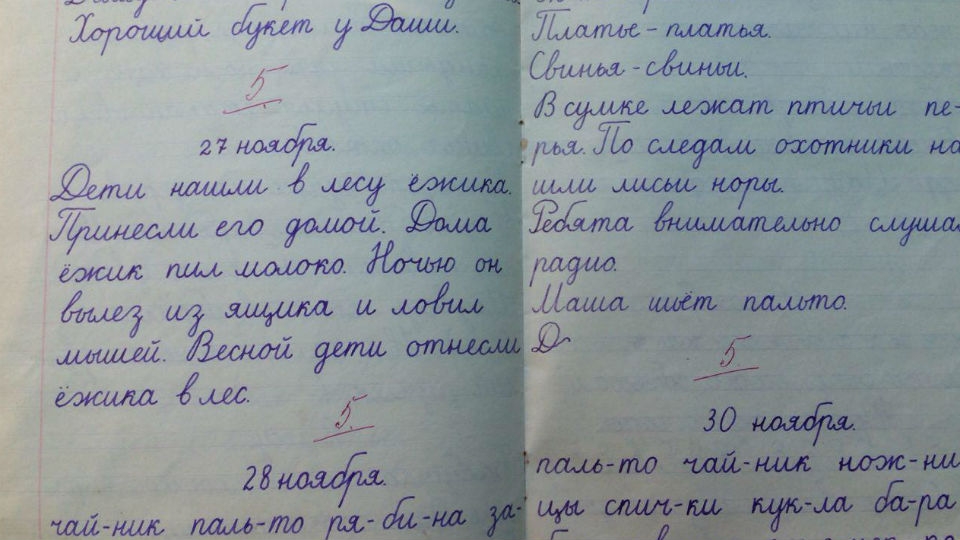 Хороший букет у Даши.
5
27 ноября.
Дети нашли в лесу ёжика.
Принесли его домой. Дома
ёжик пил молоко. Ночью он
вылез из ящика и ловил
мышей. Весной дети отнесли
ёжика в лес.
5.
28 ноября.
чай-ник паль-то ря-би-на за-
Платье - платья.
Свинья - свиньи.
В сумке лежат птичьи пе-
рья. По следам охотники на
шли лисьи норы.
Ребята внимательно слушал
радио.
Маша шьёт пальто.
Д
5.
30 ноября.
паль-то чай-ник нож-ни
цы спич-ки кук-ла ба-ра